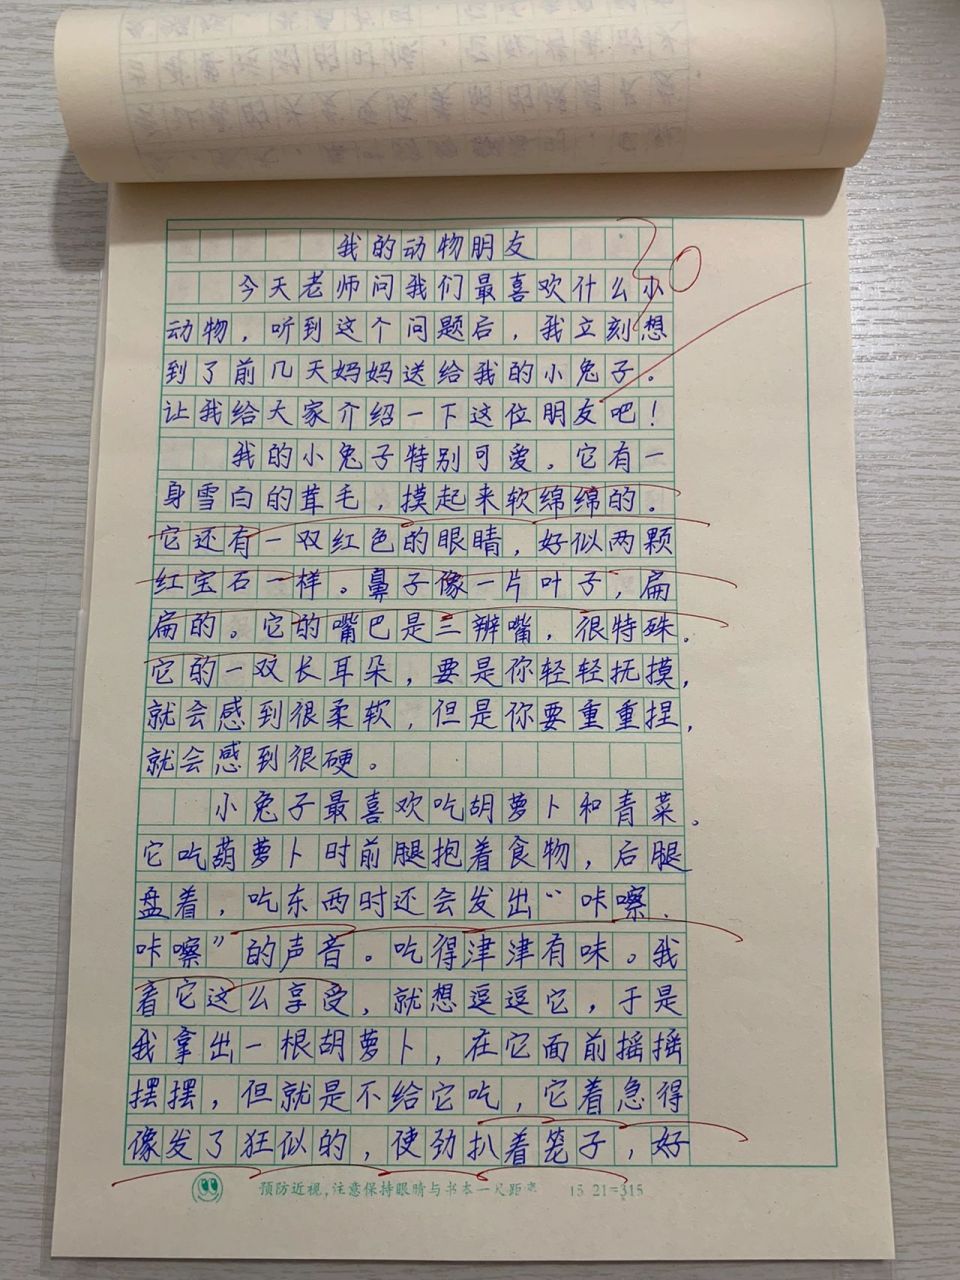 我的动物朋友
30
今天老师问我们最喜欢什么小
动物，听到这个问题后，我立刻想
到了前几天妈妈送给我的小兔子。
让我给大家介绍一下这位朋友吧！
我的小兔子特别可爱。它有一
身雪白的茸毛，摸起来软绵绵的。
它还有一双红色的眼睛，好似两颗
红宝石一样。鼻子像一片叶子，扁
扁的。它的嘴巴是三辨嘴，很特殊。
它的一双长耳朵，要是你轻轻抚摸，
就会感到很柔软，但是你要重重捏，
就会感到很硬。
小兔子最喜欢吃胡萝卜和青菜。
它吃葫萝卜时前腿抱着食物，后腿
盘着，吃东西时还会发出“咔嚓、
咔嚓”的声音。吃得津津有味。我
看它这么享受，就想逗逗它，于是
我拿出一根胡萝卜，在它面前摇摇
摆摆，但就是不给它吃，它着急得
像发了狂似的，使劲扒着笼子，好
预防近视，注意保持眼睛与书本一尺距离 15 21=315